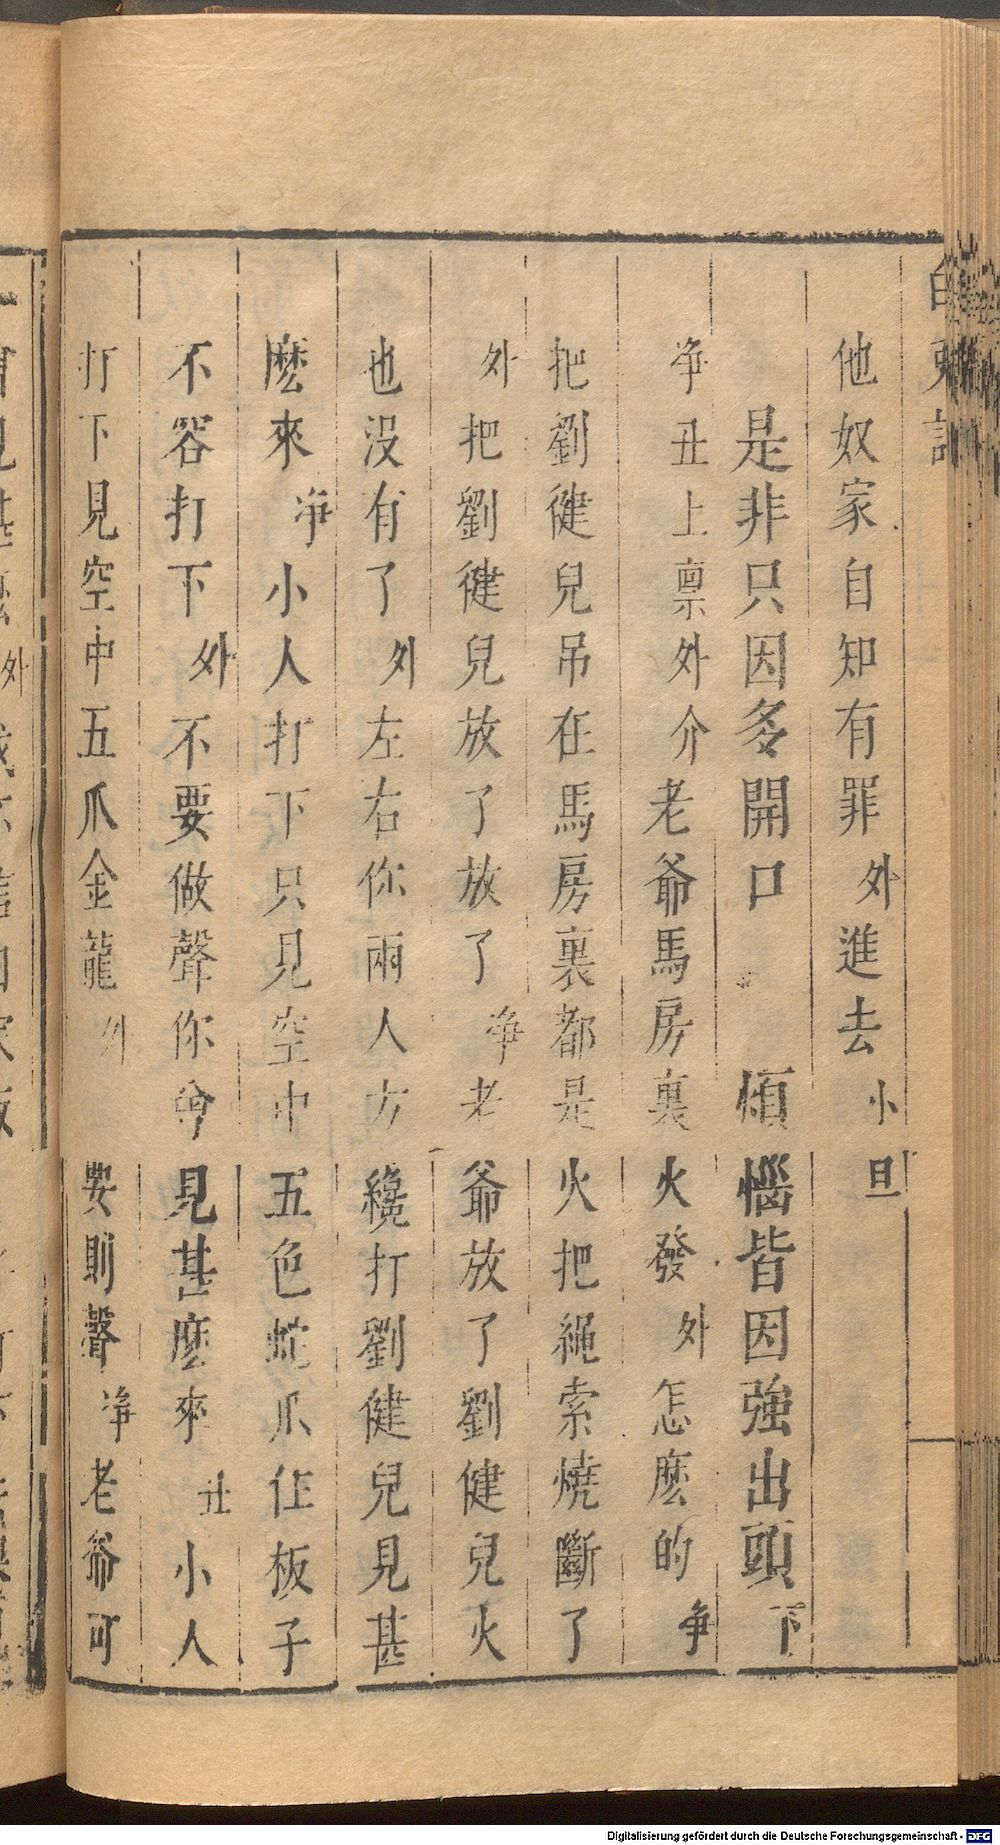 白兎記
他奴家自知有罪外進去小旦
是非只因多開口 煩惱皆因強出頭下
净丑上禀外介老爺馬房裏火發外怎麽的净
把劉健兒吊在馬房裏都是火把繩索燒斷了
外把劉健兒放了放了净老爺放了劉健兒火
也沒有了外左右你兩人方纔打劉健兒見甚
麽來净小人打下只見空中五色蛇爪住板子
不容打下外不要做聲你曾見甚麽來丑小人
打下見空中五爪金龍外要則聲净老爺可
Digitalisierung gefördert durch die Deutsche Forschungsgemeinschaft - DFG